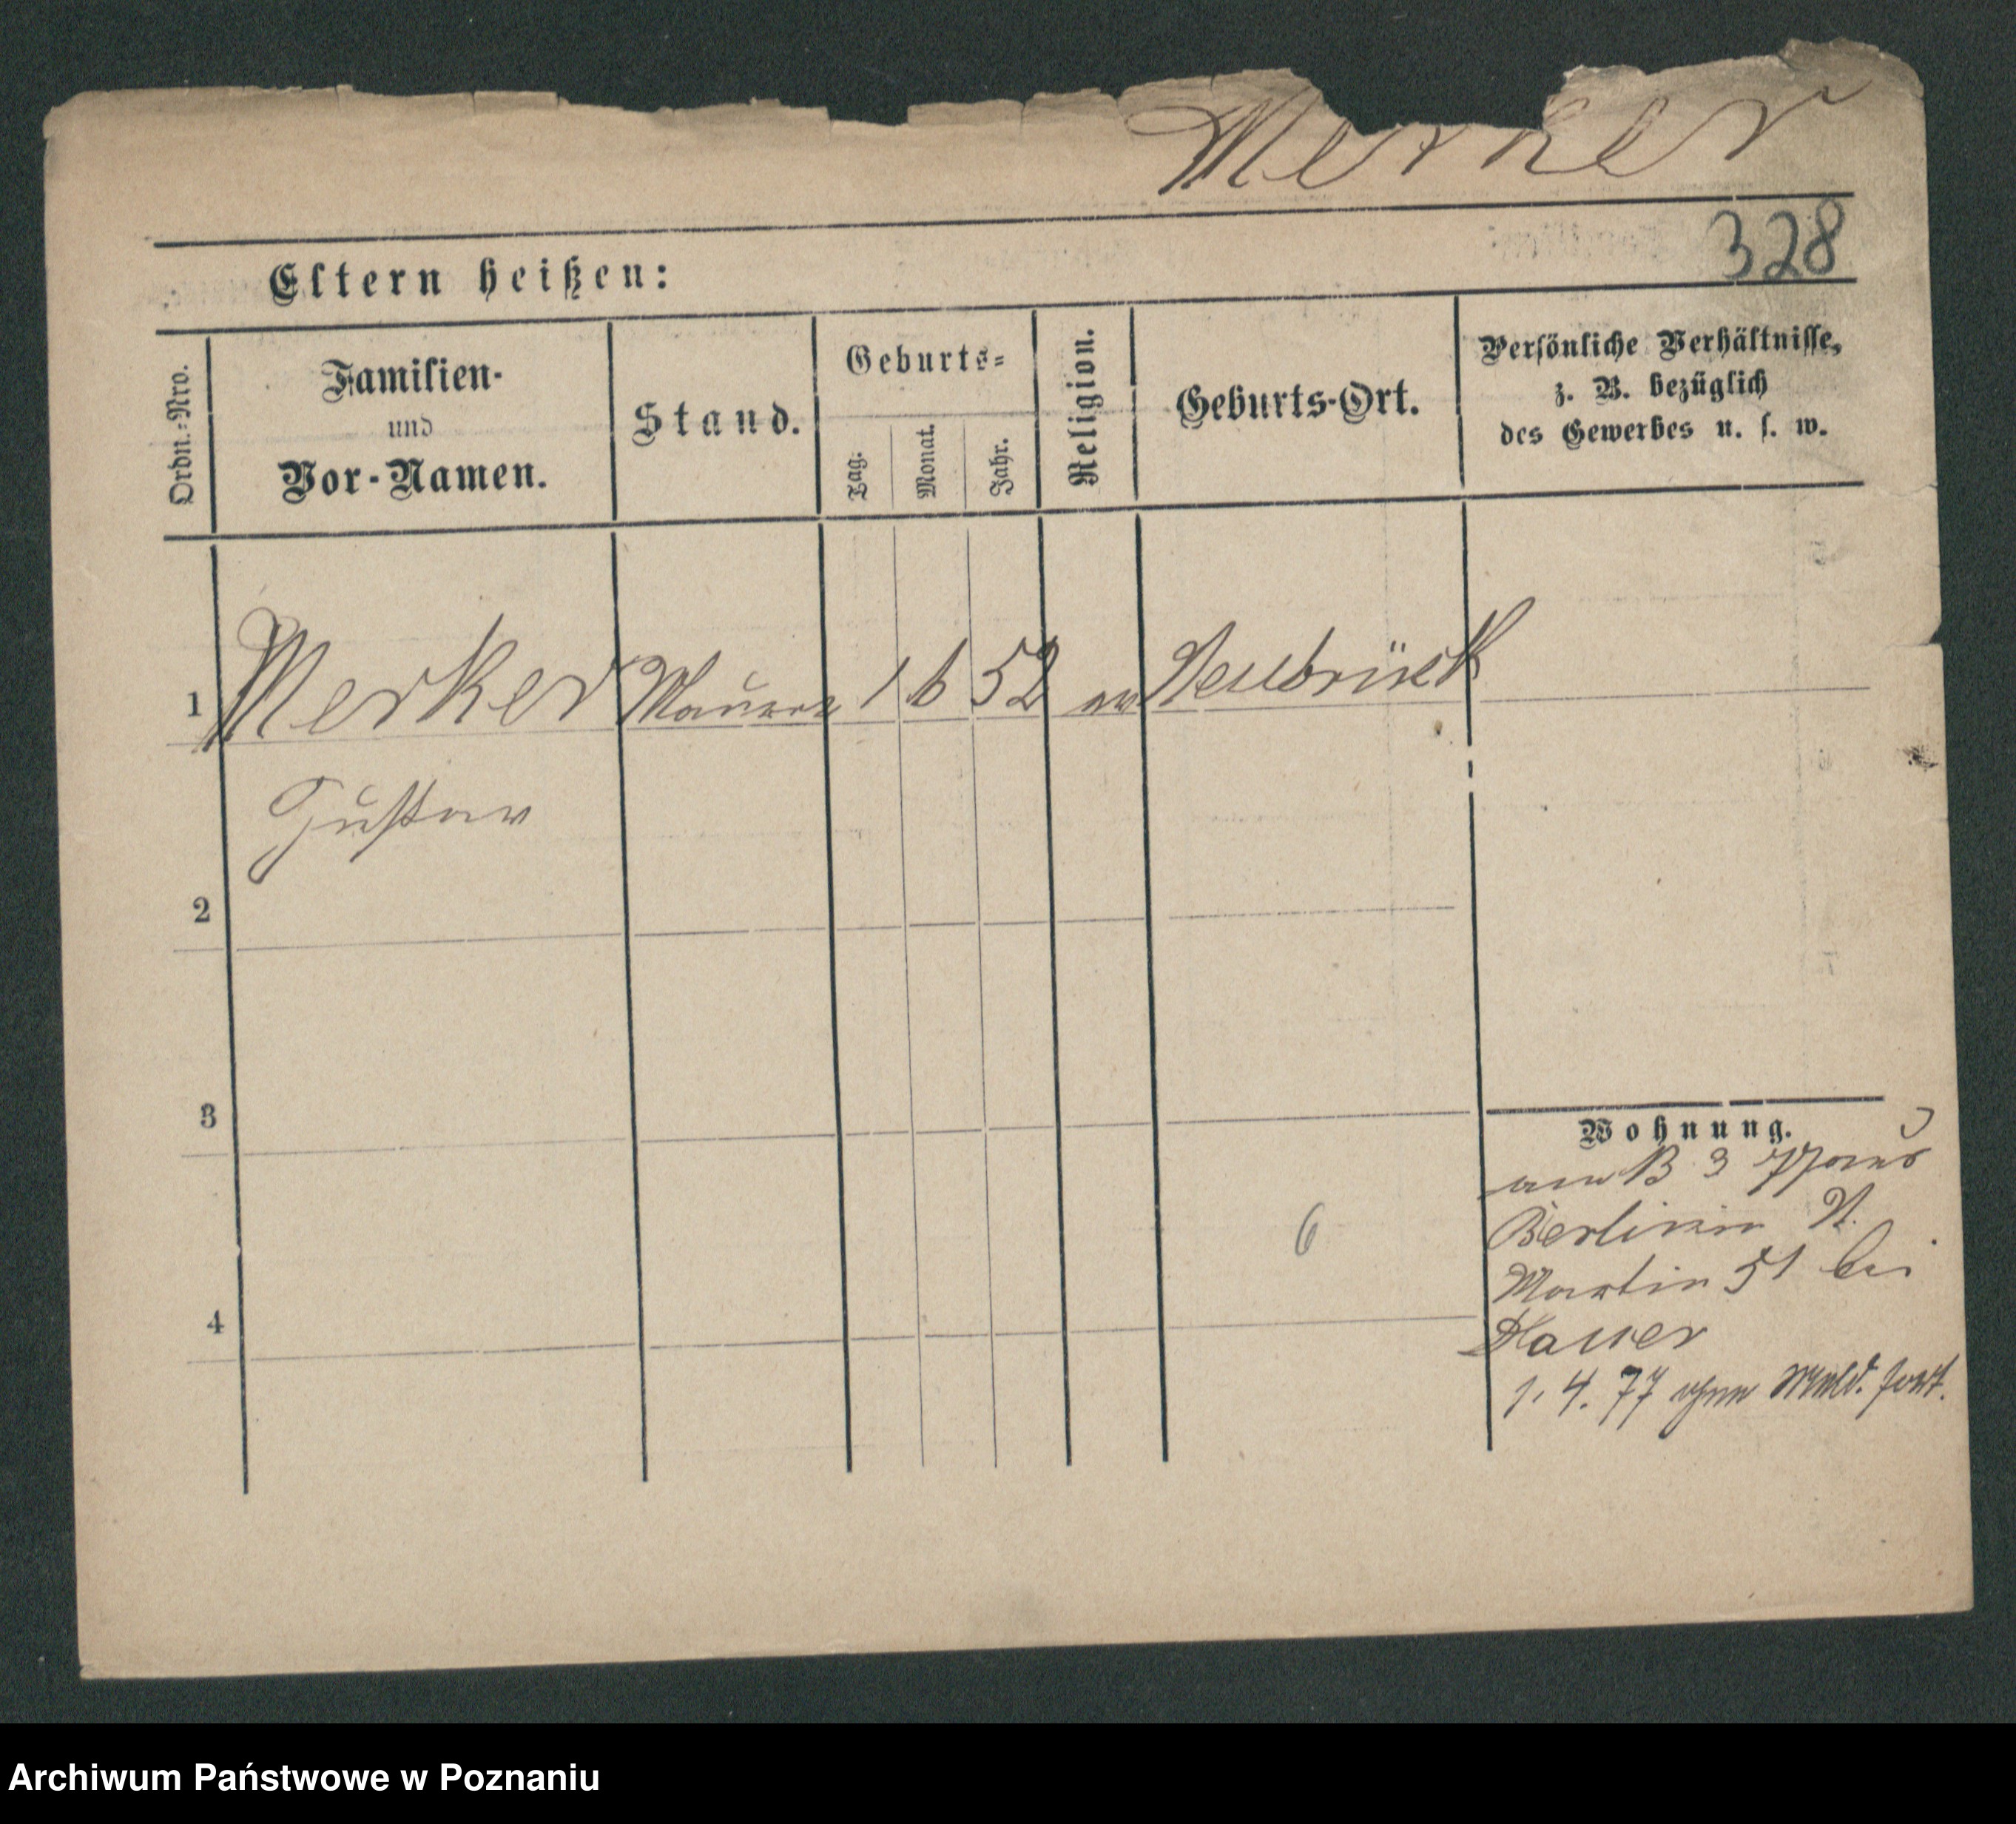 Merker
328
Eltern heißen:
Ordn.-Nro.
Familien-
und
Vor-Namen.
Stand.
Geburts-
Tag.
Monat.
Jahr.
Religion.
Geburts-Ort.
Persönliche Verhältnisse,
z. B. bezüglich
des Gewerbes u. s. w.
1 Merker Maurer 1 6 52 ev Neubrück
Gustav
2
3
Wohnung.
B 3
Berlin
6
Martin 51 bei
4
Hauer
1. 4. 77 ohne Meld. fort.
Archiwum Państwowe w Poznaniu